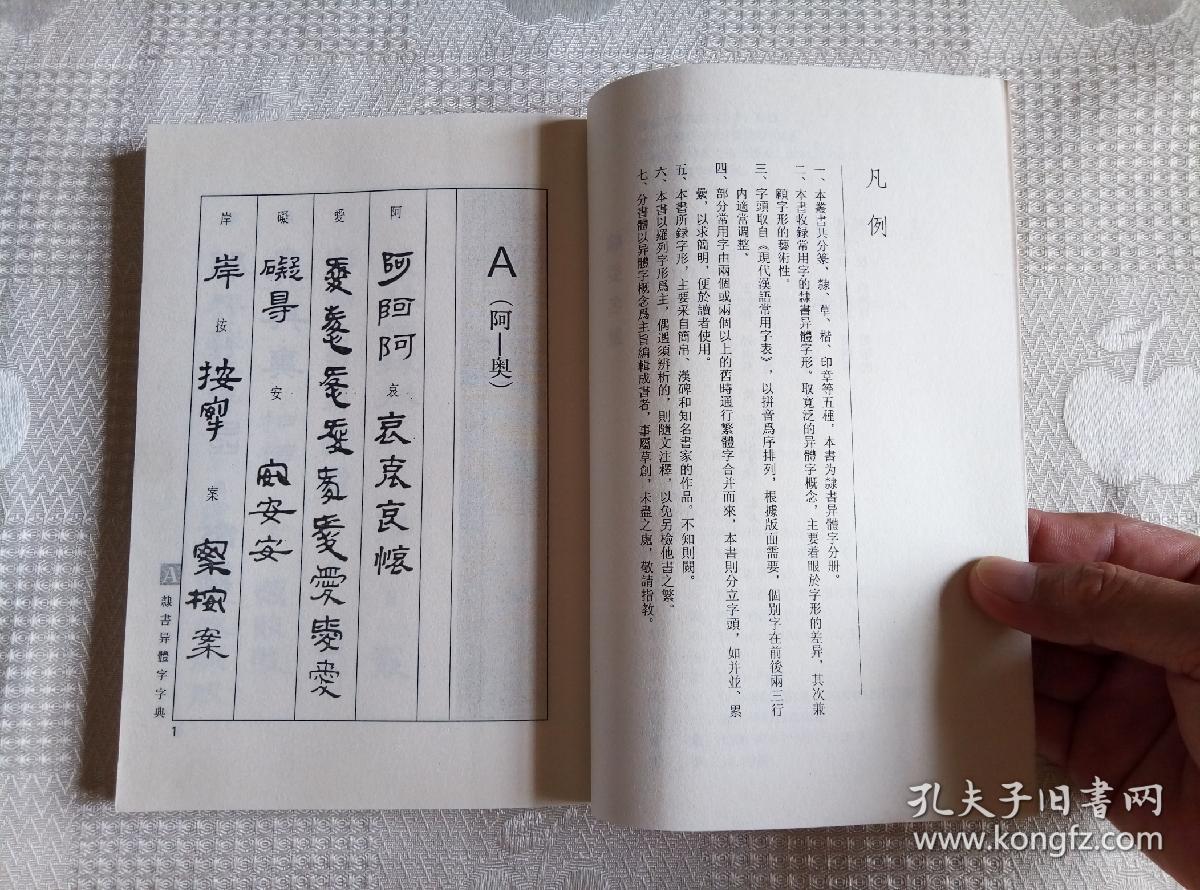 凡例
一、本叢書共分篆、隸、草、楷、印章等五種，本書为隸書异體字分册。
二、本書收録常用字的隸書异體字形。取寬泛的异體字概念，主要着眼於字形的差异，其次兼
顧字形的藝術性。
三、字頭取自《現代漢語常用字表》，以拼音爲序排列，根據版面需要，個别字在前後兩三行
内適當調整。
四、部分常用字由兩個或兩個以上的舊時通行繁體字合并而來，本書則分立字頭，如并並、累
纍，以求簡明，便於讀者使用。
五、本書所録字形，主要采自簡帛、漢碑和知名書家的作品。不知則闕。
六、本書以羅列字形爲主，偶遇須辨析的，則隨文注釋，以免另檢他書之繁。
七、分書體以异體字概念爲主旨編輯成書者，事屬草創，未盡之處，敬請指教。
A（阿—奥）
阿 阿阿阿 哀 哀哀哀
愛 愛愛愛愛愛愛愛愛愛
礙 礙 安 安安安
岸 岸 按 按 案 案案案
A 隸書异體字字典
1
孔夫子旧書网
www.kongfz.com